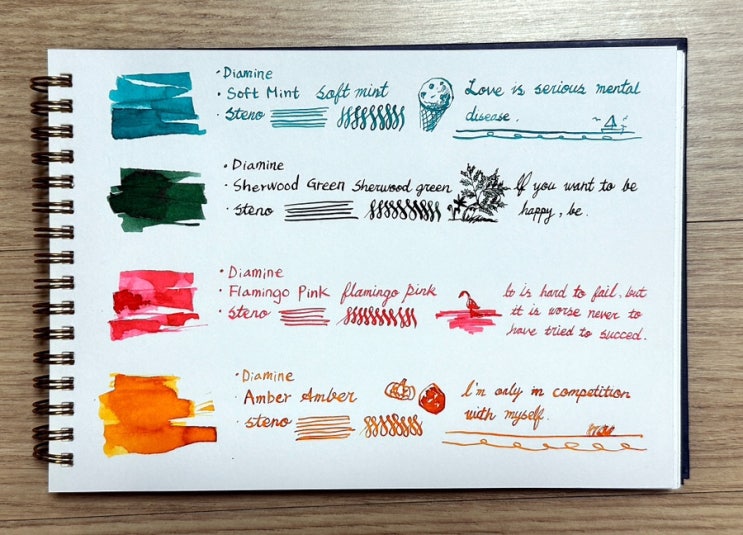 · Diamine
· Soft Mint Soft mint
· Steno
Love is serious mental
disease.
· Diamine
· Sherwood Green Sherwood green
· Steno
If you want to be
happy, be.
· Diamine
· Flamingo Pink flamingo pink
· Steno
to is hard to fail, but
it is worse never to
have tried to succed.
· Diamine
· Amber Amber
· Steno
I'm only in competition
with myself.